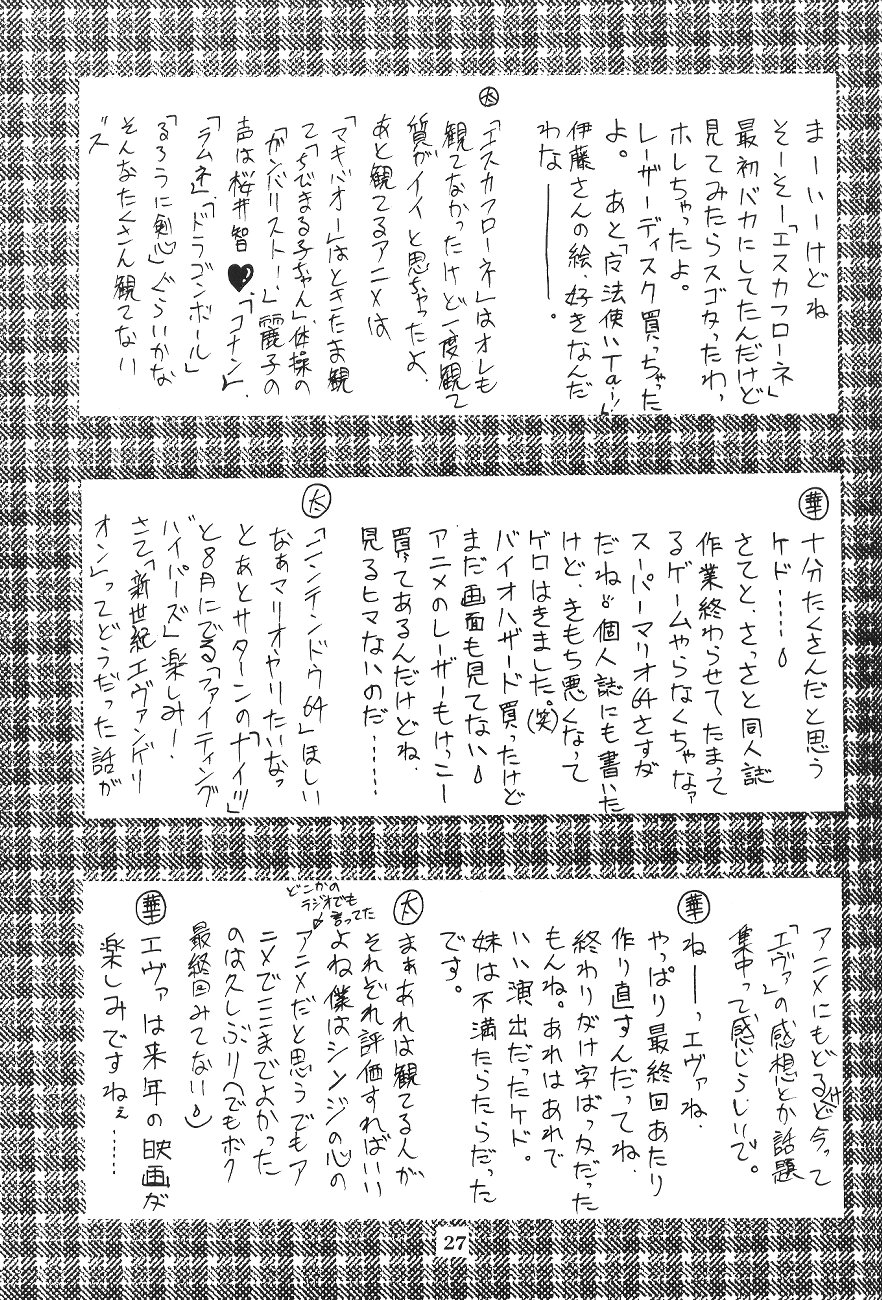 まーいーけどね
そーそー「エスカフローネ」
最初バカにしてたんだけど
見てみたらスゴかったわ,
ホレちゃったよ。
レーザーディスク買っちゃった
よ。 あと「魔法使いTai!」
伊藤さんの絵、好きなんだ
わな――――。
太
「エスカフローネ」はオレも
観てなかったけど一度観て
質がイイと思っちゃったよ.
あと観てるアニメは
「マキバオー」はときたま観
て「ちびまる子ちゃん」、体操の
「ガンバリスト!」麗子の
声は桜井智♥、「コナン」.
「ラムネ」、「ドラゴンボール」
「るろうに剣心」ぐらいかな
そんなたくさん観てない
ッス
華
十分たくさんだと思う
ケド……
さてと、さっさと同人誌
作業終わらせて、たまって
るゲームやらなくちゃなァ
スーパーマリオ64さすが
だね。個人誌にも書いた
けど、きもち悪くなって
ゲロはきました。(笑)
バイオハザード買ったけど
まだ画面も見てない
アニメのレーザーもけっこー
買ってあるんだけどね.
見るヒマないのだ……
太
「ニンテンドウ64」ほしい
なぁマリオやりたいなっ
とあとサターンの「ナイツ」
と8月にでる「ファイティング
バイパーズ」楽しみ!
さて「新世紀エヴァンゲリ
オン」ってどうだった話が
アニメにもどるけど今って
「エヴァ」の感想とか話題
集中って感じらしいで。
華
ねーーっエヴァね.
やっぱり最終回あたり
作り直すんだってね.
終わりだけ字ばっかだった
もんね。あれはあれで
いい演出だったケド。
妹は不満たらたらだった
です。
太
まぁあれは観てる人が
それぞれ評価すればいい
よね僕はシンジの心の
どこかの
ラジオでも
言ってた
アニメだと思うでもア
ニメでここまでよかった
のは久しぶり(でもボク
最終回みてない)
華
エヴァは来年の映画が
楽しみですねぇ……
27